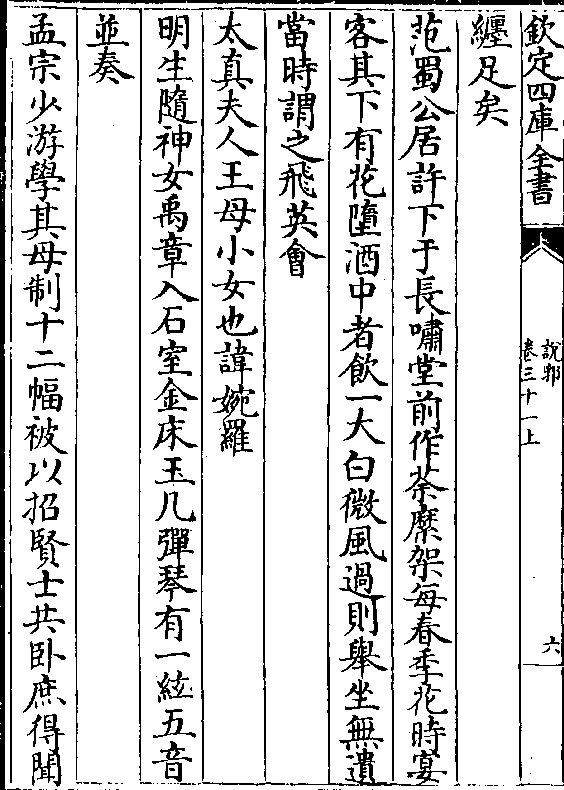 欽定四庫全書
說郛
卷三十一上
六
纏足矣
范蜀公居許下于長嘯堂前作荼縻架每春季花時宴
客其下有花墮酒中者飲一大白微風過則舉坐無遺
當時謂之飛英會
太真夫人王母小女也諱婉羅
明生隨神女禹章入石室金床玉几彈琴有一絃五音
並奏
孟宗少游學其母制十二幅被以招賢士共卧庶得聞